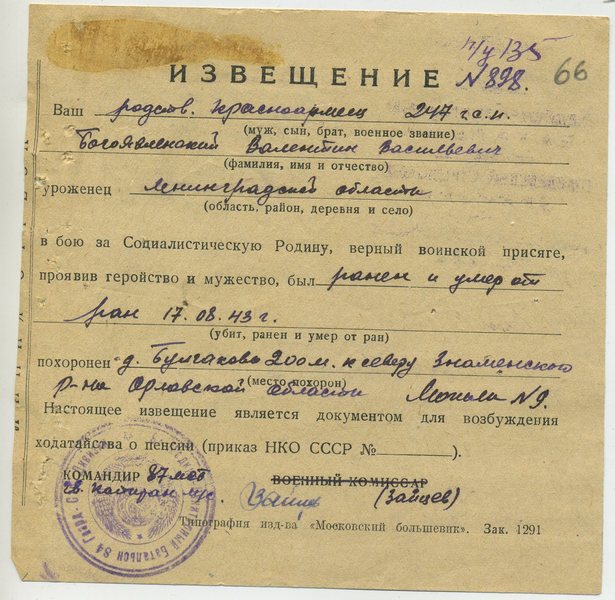 п/у 135
ИЗВЕЩЕНИЕ № 898. 66
Ваш родств. красноармец 247 г.с.п.
(муж, сын, брат, военное звание)
Богоявленский Валентин Васильевич
(фамилия, имя и отчество)
уроженец Ленинградской области
(область, район, деревня и село)
в бою за Социалистическую Родину, верный воинской присяге,
проявив геройство и мужество, был ранен и умер от
ран 17.08.43 г.
(убит, ранен и умер от ран)
похоронен д. Булгаково 200 м. к северу Знаменского
р-на Орловской области Могила №9.
(место похорон)
Настоящее извещение является документом для возбуждения
ходатайства о пенсии (приказ НКО СССР № ).
КОМАНДИР 87 мсб ВОЕННЫЙ КОМИССАР
гв. капитан м/с. (Зайцев)
Типография изд-ва «Московский большевик». Зак. 1291
Батальон 84 Гвард.